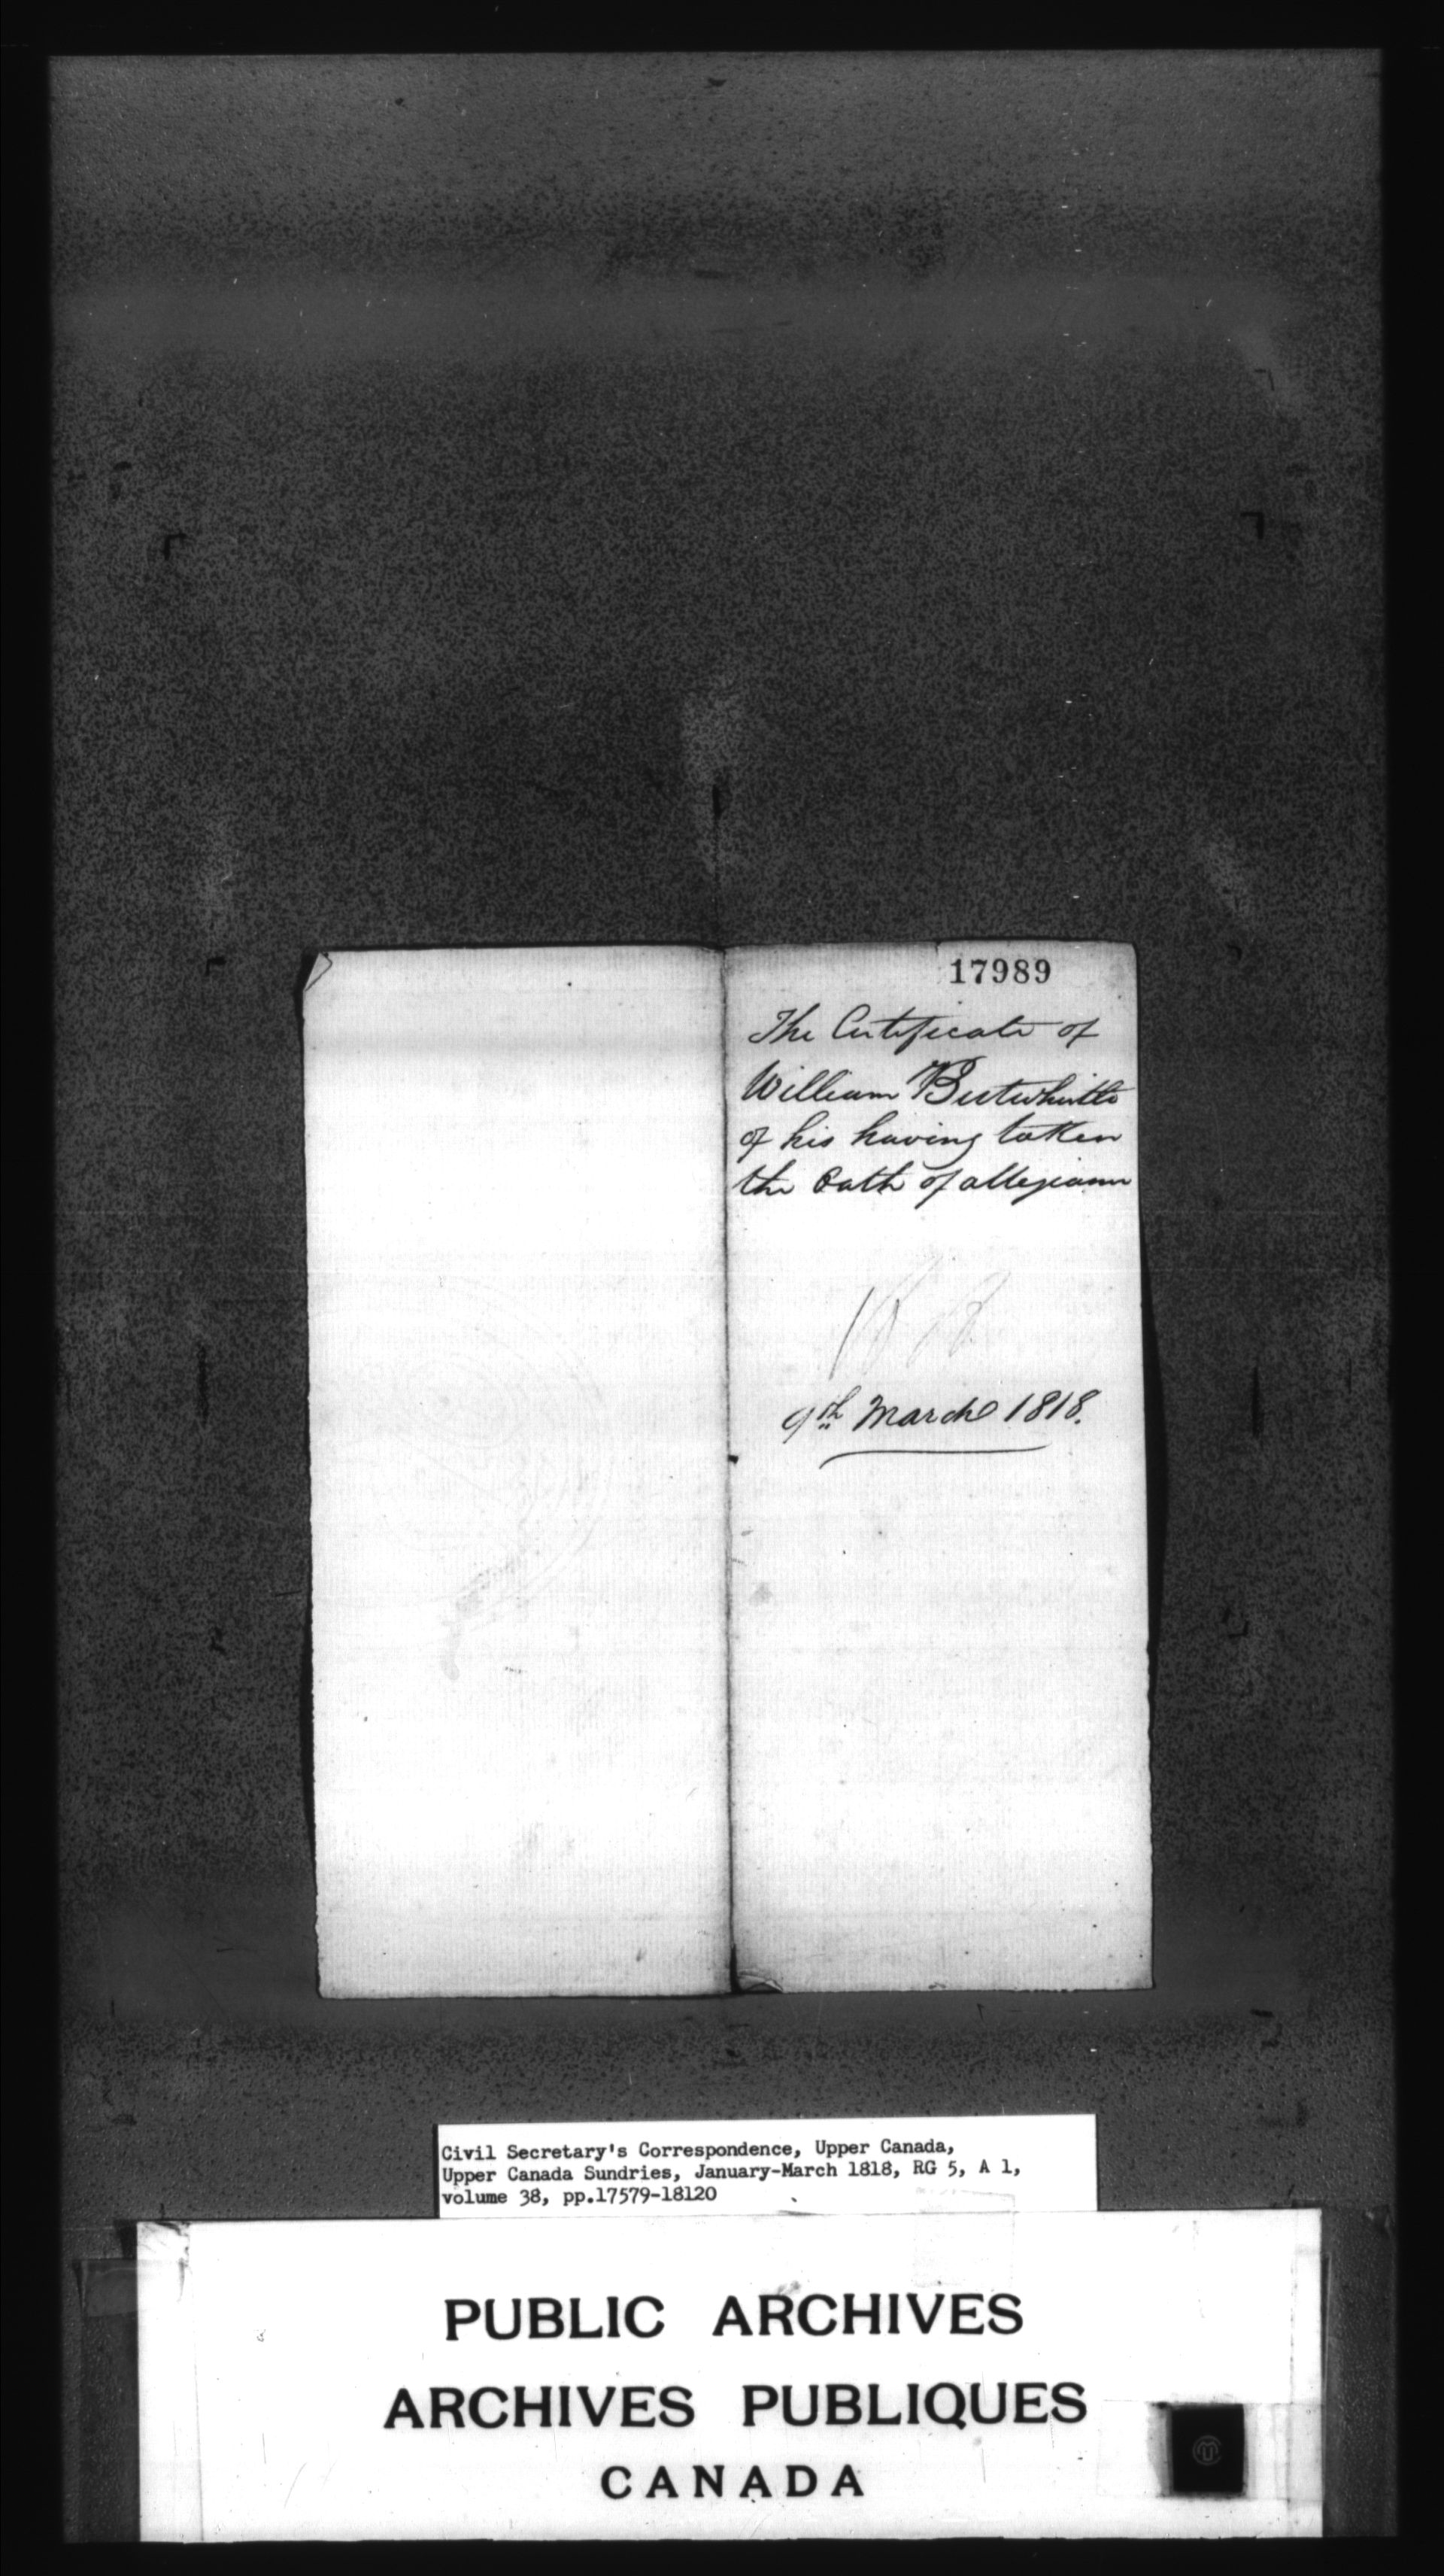 17989
The Certificate of
William Birtwhistle
of his having taken
the Oath of allegiance
9th March 1818.
Civil Secretary's Correspondence, Upper Canada,
Upper Canada Sundries, January-March 1818, RG 5, A 1,
volume 38, pp.17579-18120
PUBLIC ARCHIVES
ARCHIVES PUBLIQUES
CANADA